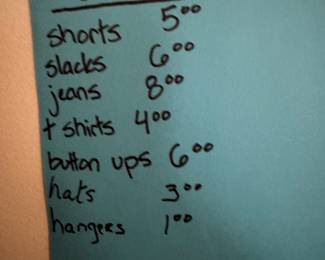 shorts 5⁰⁰
slacks 6⁰⁰
jeans 8⁰⁰
t shirts 4⁰⁰
button ups 6⁰⁰
hats 3⁰⁰
hangers 1⁰⁰